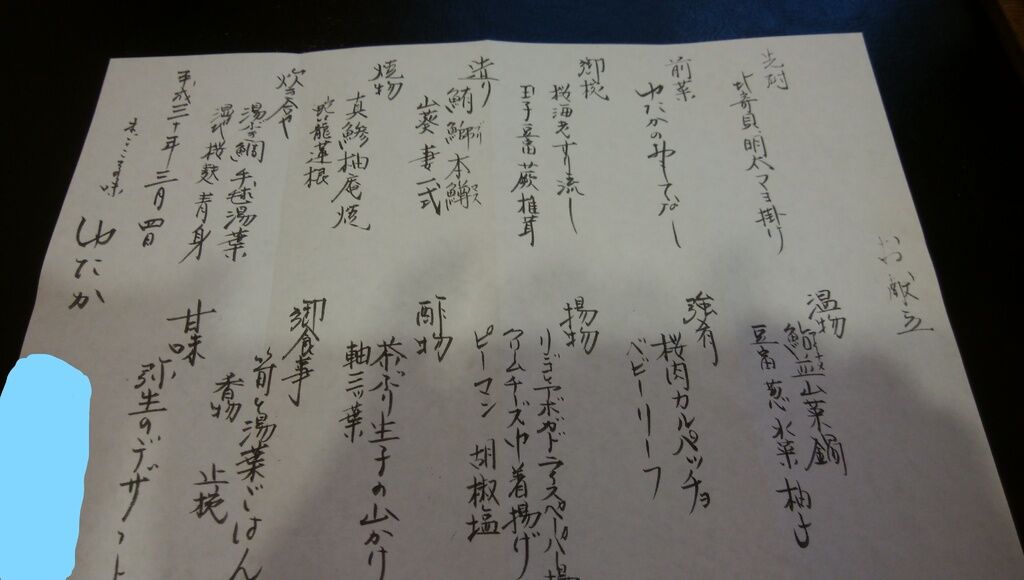 お献立
先附
北寄貝、明太マヨ掛け
前菜
ゆたかのおもてなし
御椀
桜海老すり流し
玉子豆富 蕨 椎茸
造り
鮪 鰤 本鱒
山葵 妻一式
焼物
真鯵柚庵焼
蒟蒻 蓮根
炊き合せ
鯛 手毬湯葉
桜麩 青身
平成三十年 三月 四日
ゆたか
温物
山菜鍋
豆富 葱 水菜 柚子
強肴
桜肉カルパッチョ
ベビーリーフ
揚物
アボガドライスペーパー揚
クリームチーズ巾着揚げ
ピーマン 胡椒塩
酢物
茶ぶり生子の山かけ
軸三ツ葉
御食事
筍と湯葉ごはん
香物 止椀
甘味
弥生のデザート